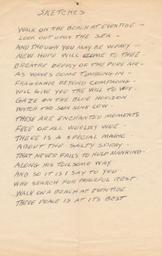 SKETCHES
WALK ON THE BEACH AT EVENTIDE -
LOOK OUT UPON THE SEA -
AND THOUGH YOU MAY BE WEARY -
NEW HOPE WILL COME TO THEE
BREATHE DEEPLY OF THE PURE AIR -
AS WAVES COME TUMBLING IN -
FRAGRANCE BEYOND COMPARE -
WILL GIVE YOU THE WILL TO WIN.
GAZE ON THE BLUE HORIZON
WITH THE SUN LOW -
THESE ARE ENCHANTED MOMENTS
FREE OF ALL WORLDLY WOE -
THERE IS A SPECIAL MAGIC
ABOUT THE SALTY SPRAY -
THAT NEVER FAILS TO HELP MANKIND -
ALONG HIS TOILSOME WAY
AND SO IT IS I SAY TO YOU
WHO SEARCH FOR PEACEFUL REST
WALK ON A BEACH AT EVENTIDE
THERE PEACE IS AT ITS BEST